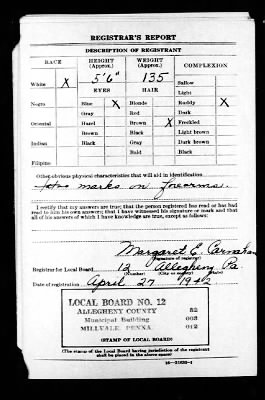 REGISTRAR'S REPORT
DESCRIPTION OF REGISTRANT
RACE HEIGHT (Approx.) WEIGHT (Approx.) COMPLEXION
5'6" 135 Sallow
White X EYES HAIR Light
Negro Blue X Blonde Ruddy X
Gray Red Dark
Oriental Hazel Brown X Freckled
Brown Black Light brown
Indian Black Gray Dark brown
Bald Black
Filipino
Other obvious physical characteristics that will aid in identification
marks on forearms.
I certify that my answers are true; that the person registered has read or has had
read to him his own answers; that I have witnessed his signature or mark and that
all of his answers of which I have knowledge are true, except as follows:
Margaret E. Carnahan
(Signature of registrar)
Registrar for Local Board 12 Allegheny Pa.
(Number) (City or county) (State)
Date of registration April 27 1942
LOCAL BOARD NO. 12
ALLEGHENY COUNTY 52
Municipal Building 003
MILLVALE, PENNA. 012
(STAMP OF LOCAL BOARD)
(The stamp of the Local Board having jurisdiction of the registrant
shall be placed in the above space.)